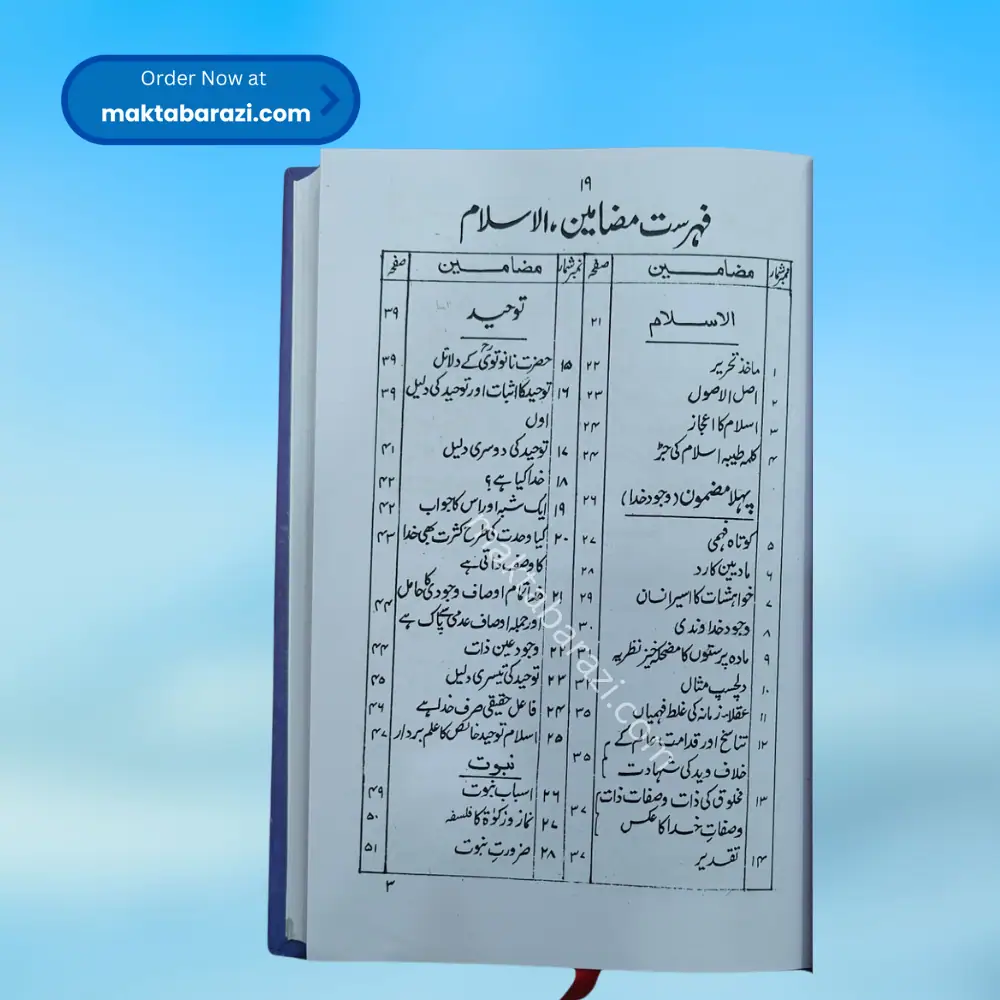 Order Now at
maktabarazi.com
۱۹
فہرست مضامین، الاسلام
نمبر شمار مضامین صفحہ
الاسلام ۲۱
۱ ماخذ تحریر ۲۲
۲ اصل الاصول ۲۳
۳ اسلام کا اعجاز ۲۴
۴ کلمہ طیبہ اسلام کی جڑ ۲۴
پہلا مضمون (وجود خدا) ۲۶
۵ کوتاہ فہمی ۲۷
۶ مادیین کا رد ۲۸
۷ خواہشات کا اسیر انسان ۲۹
۸ وجود خداوندی ۳۰
۹ مادہ پرستوں کا مضحکہ خیز نظریہ ۳۱
۱۰ دلچسپ مثال ۳۱
۱۱ عقلاء زمانہ کی غلط فہمیاں ۳۵
۱۲ تناسخ اور قدامت عالم کے
خلاف وید کی شہادت ۳۵
۱۳ مخلوق کی ذات وصفات ذات
وصفات خدا کا عکس ۳۷
۱۴ تقدیر ۳۷
نمبر شمار مضامین صفحہ
توحید ۳۹
۱۵ حضرت نانوتویؒ کے دلائل ۳۹
۱۶ توحید کا اثبات اور توحید کی دلیل ۳۹
اول
۱۷ توحید کی دوسری دلیل ۴۱
۱۸ خدا کیا ہے؟ ۴۲
۱۹ ایک شبہ اور اس کا جواب ۴۲
۲۰ کیا وحدت کی طرح کثرت بھی خدا ۴۳
کا وصف ذاتی ہے
۲۱ خدا تمام اوصاف وجودی کا حامل ۴۴
اور جملہ اوصاف عدمی سے پاک ہے
۲۲ وجود عین ذات ۴۴
۲۳ توحید کی تیسری دلیل ۴۵
۲۴ فاعل حقیقی صرف خدا ہے ۴۶
۲۵ اسلام توحید خالص کا علم بردار ۴۷
نبوت
۲۶ اسباب نبوت ۴۹
۲۷ نماز و زکوٰۃ کا فلسفہ ۵۰
۲۸ ضرورتِ نبوت ۵۱
۳
maktabarazi.com